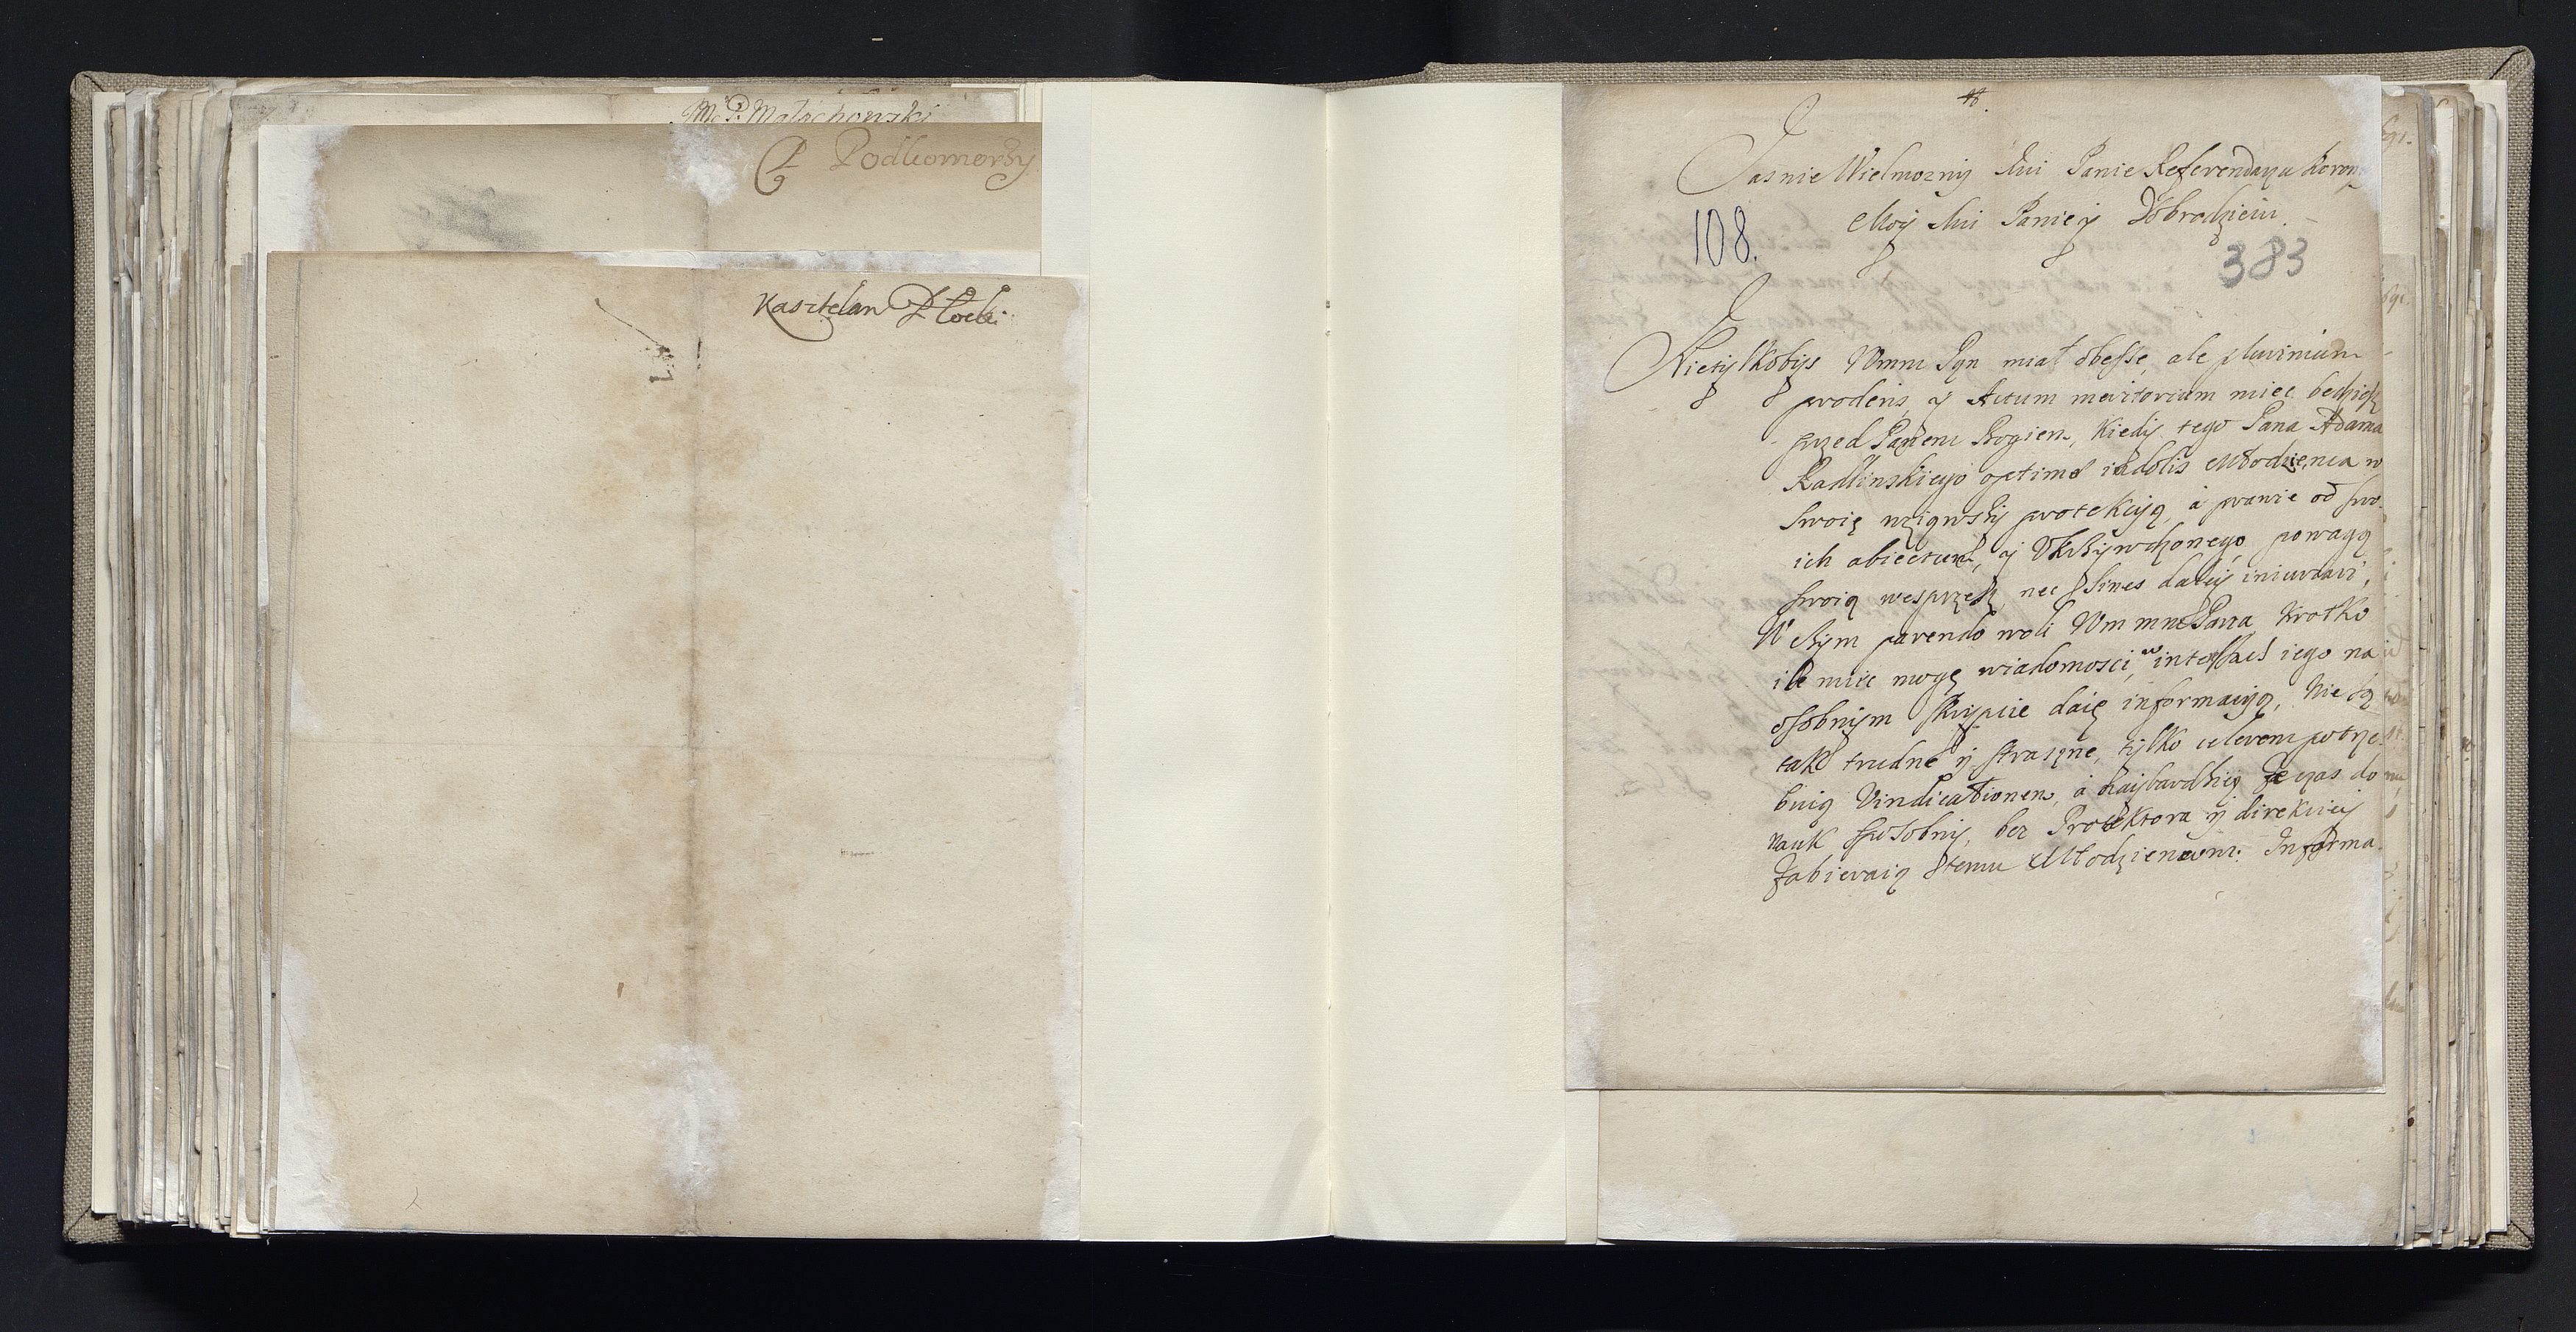 Mć P. Małachowski
P Podkomorzy
Kasztelan Płocki
Jasnie Wielmozny Mći Panie Referendarzu Koron
Moy Mći Panie y Dobrodzieiu
108.
383
Nietylkobys Wmm Pan miał obesse, ale plurimum
proderis, y Actum meritorium miec będziesz
przed Panem Bogiem, Kiedy tego Pana Adama
Radlinskiego optimæ indolis Młodzienca w
swoię wziąwszy protekcyą, a prawie od swo
ich abiectum, y Ukrzywdzonego, powagą
swoią wesprzesz, nec sines daley iniuriari,
W czym parendo woli Wm mm Pana krotko
ile miec mogę wiadomosci, w interessach iego na
osobnym skrypcie daię informacyą, Nie są
tak trudne y straszne, tylko celerem potrze
buią Vindicationem, a naybardziey ze czas do
nauk sposobny, bez Protektora y direkciey
zabieraią temu Młodziencowi. Informa